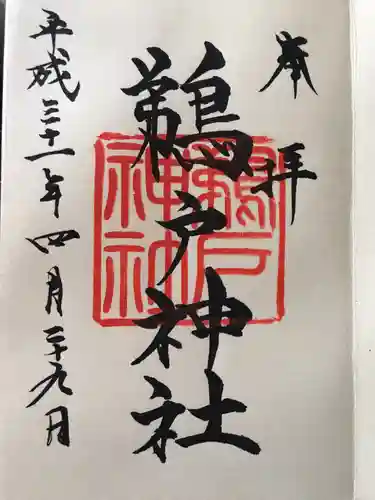 奉拝
鵜戸神社
平成三十一年四月二十九日
鵜戸神社